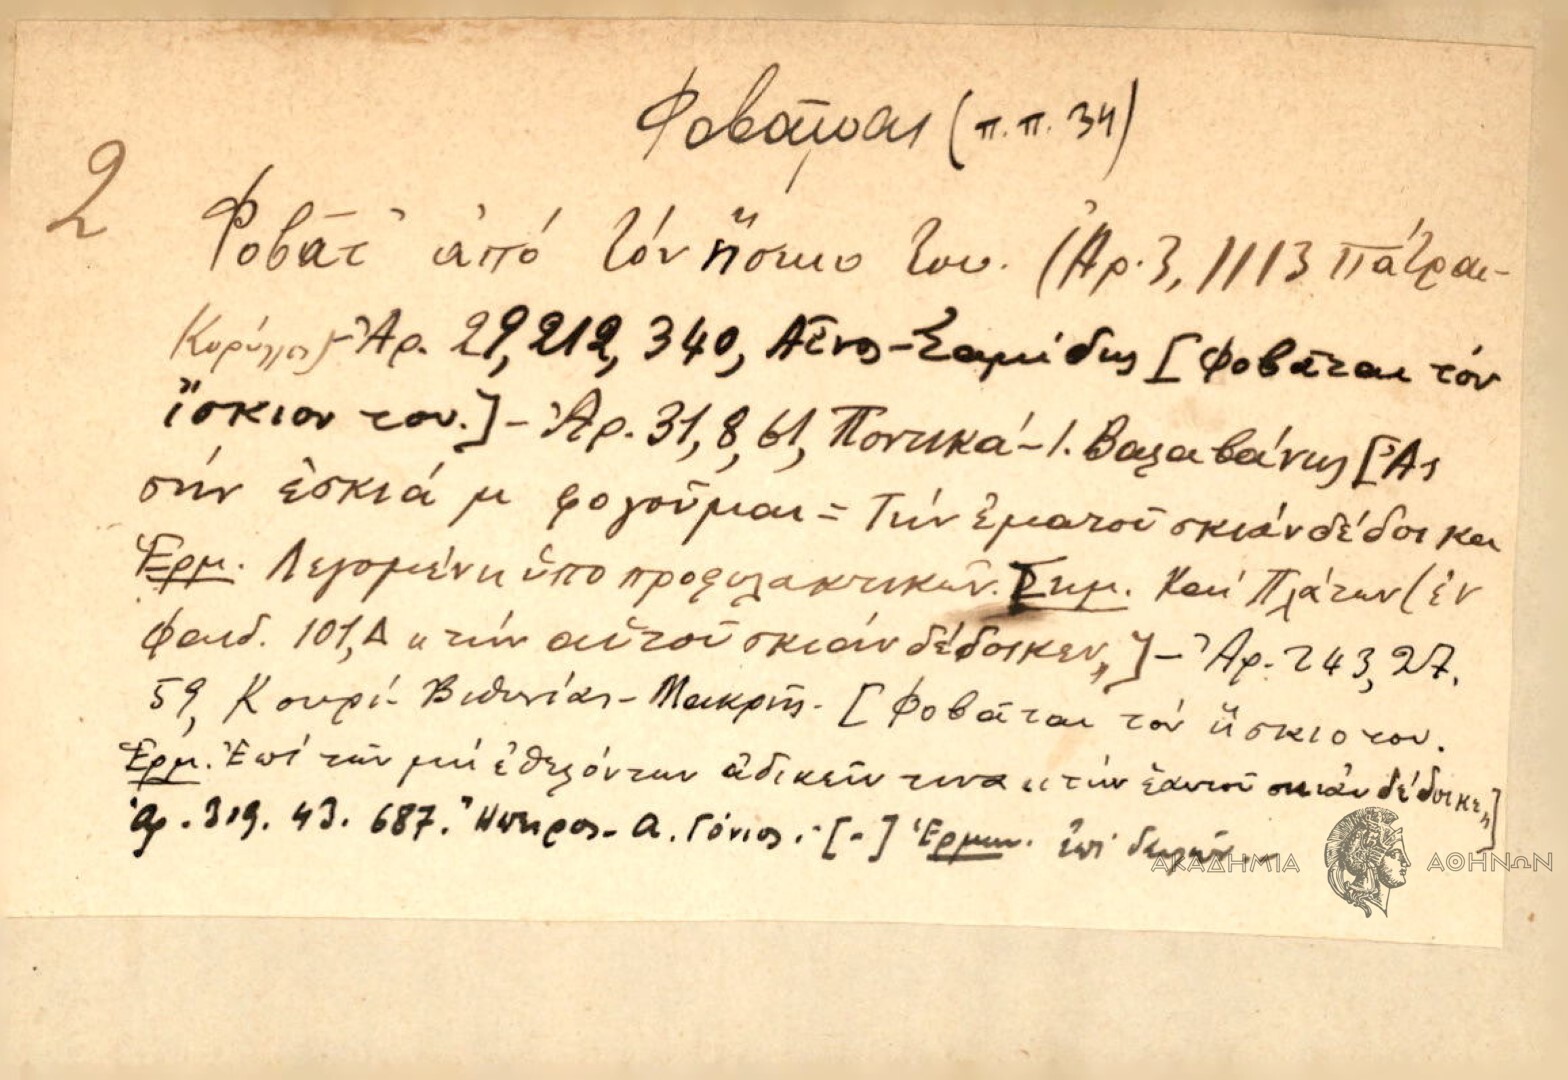 Φοβᾶμαι (π.π. 34)
2
Φοβᾶτ' ἀπό τόν ἥσκιο του. (Ἀρ. 3, 1113 Πάτραι-
Κορύλλος)-Ἀρ. 29, 212, 340, Αἶνος-Σαμίδης [Φοβᾶται τόν
ἴσκιον του.]-Ἀρ. 31, 8, 61, Ποντικά-Ι. Βαλαβάνης [Ἀς
σήν ἐσκιά μ φογοῦμαι = Τήν ἐματοῦ σκιάν δέδοικα
Ἑρμ. Λεγομένη ὑπό προφυλακτικῶν. Σημ. Καί Πλάτων (ἐν
Φαιδ. 101,Δ "τήν αὑτοῦ σκιάν δέδοικεν"]-Ἀρ. 243, 27.
59, Κουρί-Βιθυνίας-Μακρῆς. [Φοβᾶται τόν ἥσκιο του.
Ἑρμ. Ἐπί τῶν μή ἐθελόντων ἀδικεῖν τινα "τήν ἑαυτοῦ σκιάν δέδοικε"]
Ἀρ. 319. 43. 687. Ἤπειρος-Α. Γόνιος. [-] Ἑρμην. ἐπί δειλῶν.-
ΑΚΑΔΗΜΙΑ ΑΘΗΝΩΝ